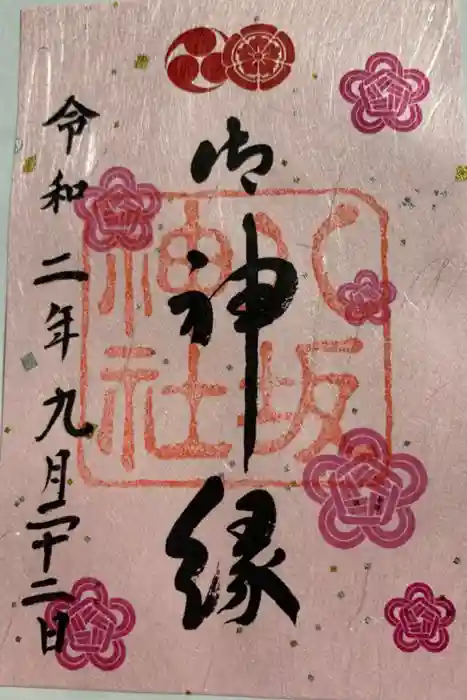 御神縁
八坂神社
令和二年九月二十二日